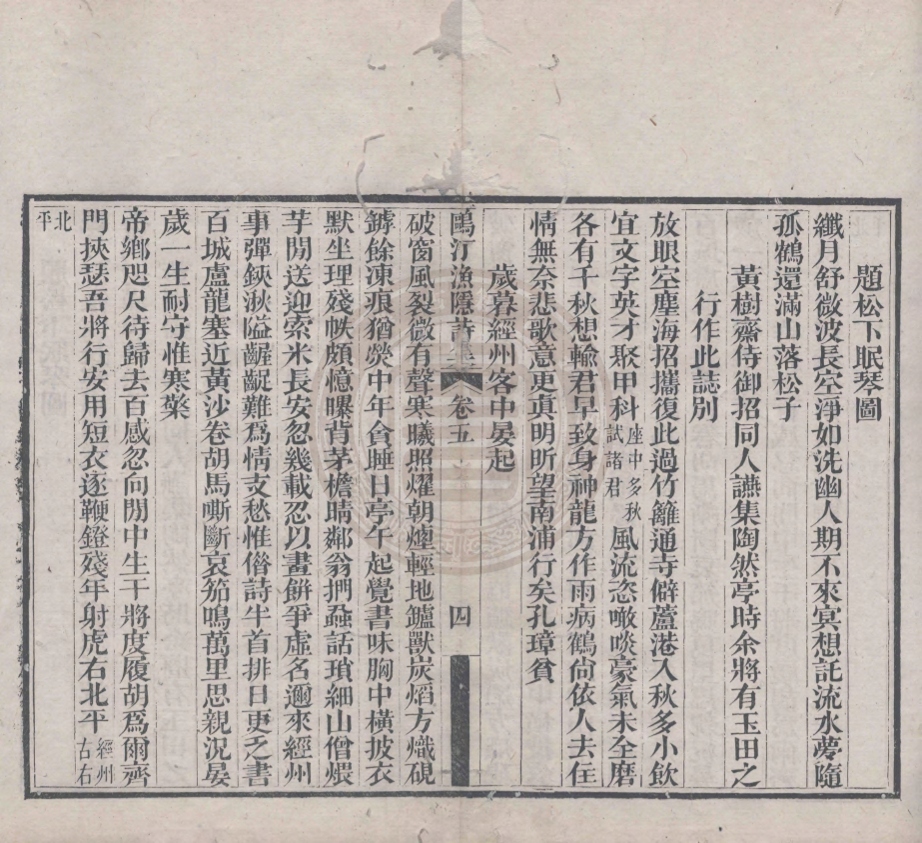 題松下眠琴圖
纖月舒微波長空淨如洗幽人期不來冥想託流水夢隨
孤鶴還滿山落松子
黃樹齋侍御招同人讌集陶然亭時余將有玉田之
行作此誌別
放眼空塵海招攜復此過竹籬通寺僻蘆港入秋多小飲
宜文字英才聚甲科座中多秋試諸君風流恣噉啖豪氣未全磨
各有千秋想輸君早致身神龍方作雨病鶴尙依人去住
情無奈悲歌意更眞明昕望南浦行矣孔璋貧
歲暮經州客中晏起
鷗汀漁隱詩集 卷五 四
破窗風裂微有聲寒曦照燿朝煙輕地鑪獸炭熖方熾硯
罅餘凍痕猶熒中年貪睡日亭午起覺書味胸中橫披衣
默坐理殘帙頗憶曝背茅檐晴鄰翁捫蝨話瑣細山僧煨
芋閒送迎索米長安忽幾載忍以畫餅爭虛名邇來經州
事彈鋏湫隘齷齪難爲情支愁惟偕詩牛首排日更之書
百城盧龍塞近黃沙卷胡馬嘶斷哀笳鳴萬里思親況晏
歲一生耐守惟寒檠
帝鄉咫尺待歸去百感忽向閒中生干將度履胡爲爾齊
門挾瑟吾將行安用短衣逐鞭鐙殘年射虎右北平經州古右
北平